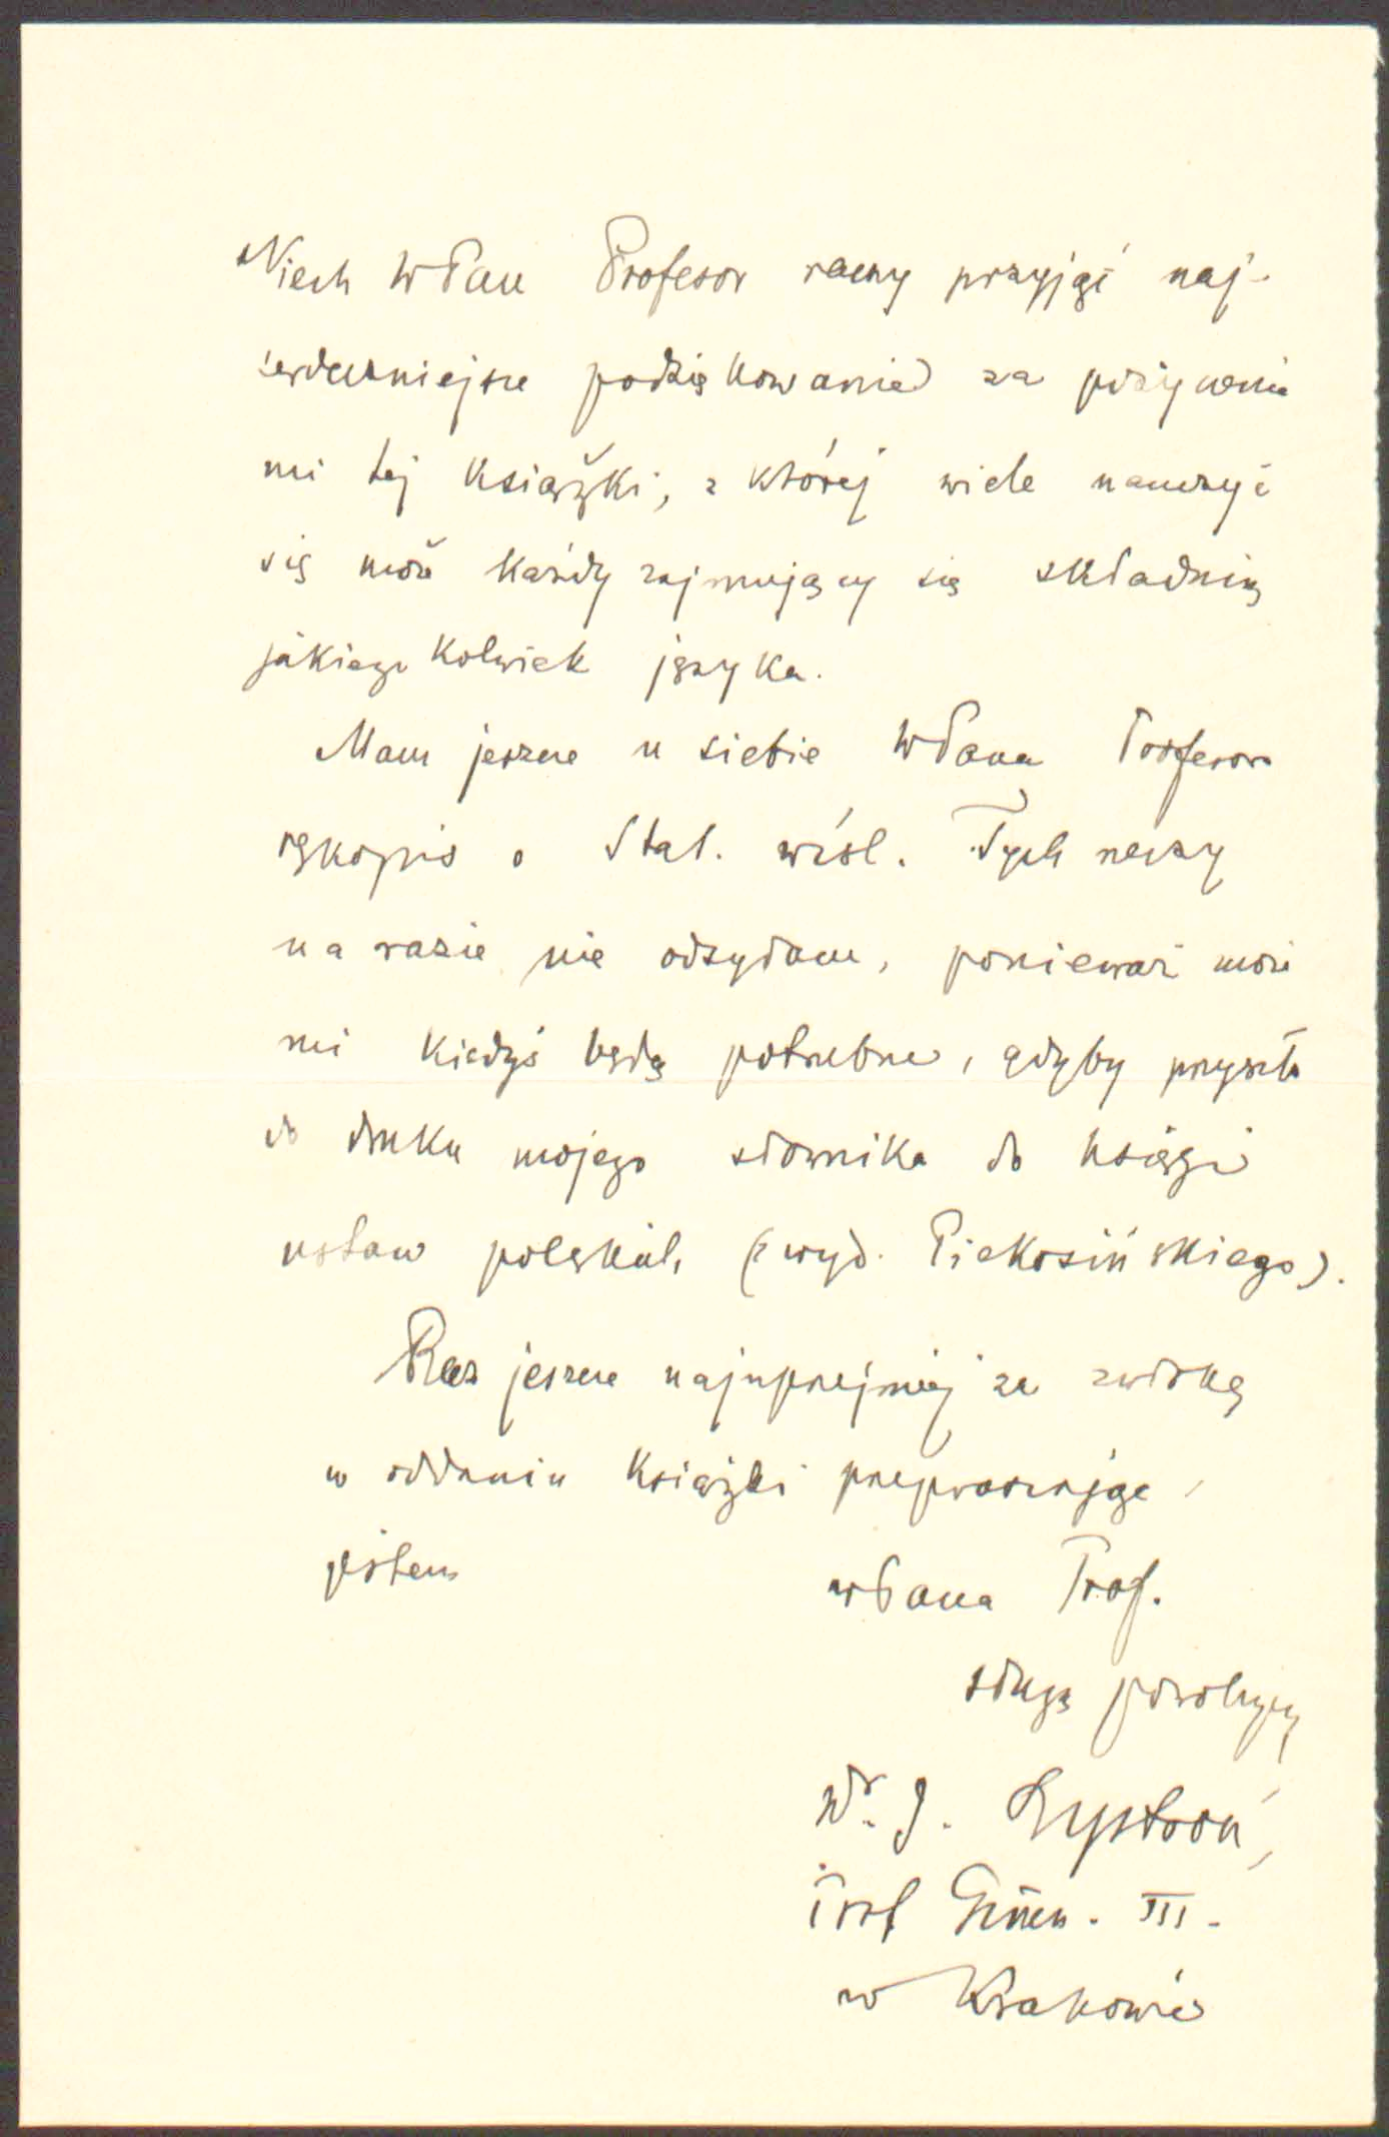 Niech WPan Profesor raczy przyjąć naj-
serdeczniejsze podziękowanie za pożyczenie
mi tej książki, z której wiele nauczyć
się może każdy zajmujący się składnią
jakiegokolwiek języka.
Mam jeszcze u siebie WPana Profesora
rękopis o Stat. wiśl. Tych rzeczy
na razie nie odsyłam, ponieważ może
mi kiedyś będą potrzebne, gdyby przyszło
do druku mojego słownika do księgi
ustaw polskich (z wyd. Piekosińskiego).
Raz jeszcze najuprzejmiej za zwłokę
w oddaniu książki przepraszając
jestem
WPana Prof.
sługą powolnym
Dr. J. Łystroń,
Prof Gimn. III.
w Krakowie